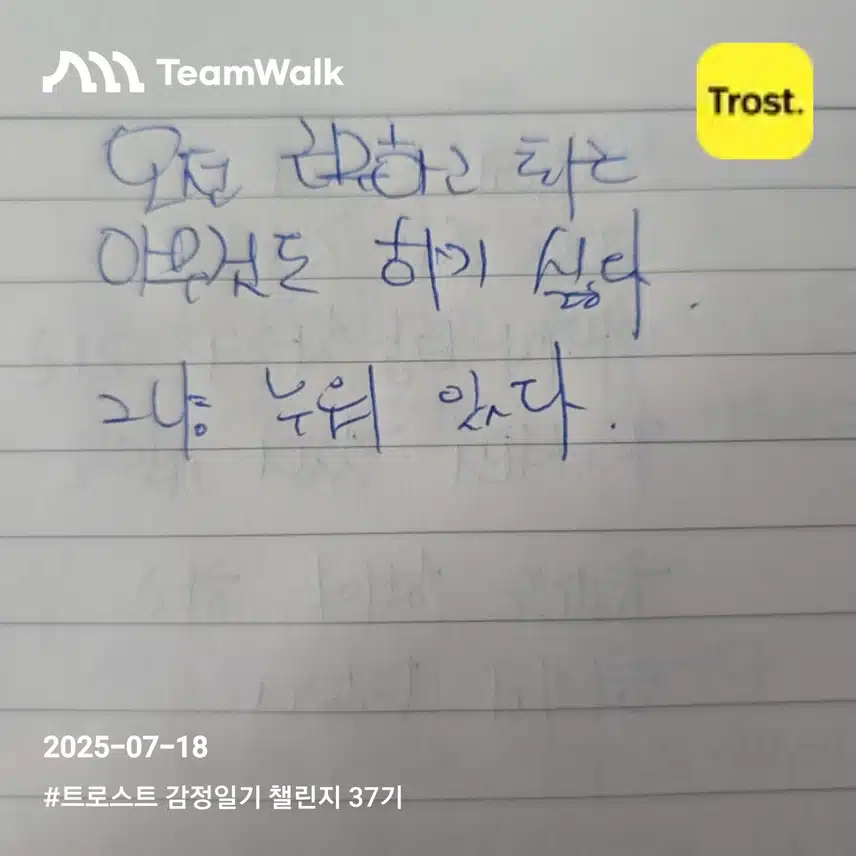 TeamWalk
Trost.
오전 하고
아무것도 하기 싫다.
그냥 누워 있다.
2025-07-18
#트로스트 감정일기 챌린지 37기